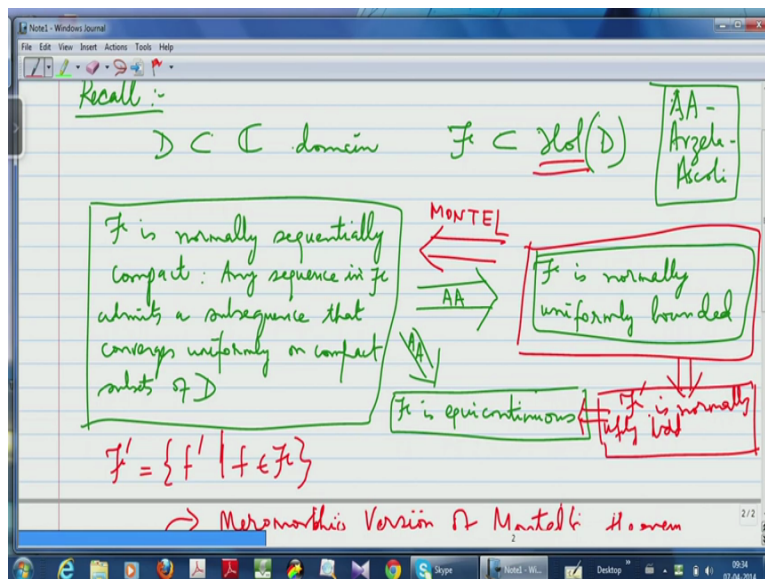 Note1 - Windows Journal
File Edit View Insert Actions Tools Help
Recall :-
D ⊂ ℂ domain F ⊂ Hol(D)
AA -
Arzela-
Ascoli
F is normally sequentially
compact : Any sequence in F
admits a subsequence that
converges uniformly on compact
subsets of D
MONTEL
AA
AA
F is normally
uniformly bounded
F is equicontinuous
F' is normally
ufly bdd
F' = {f' | f ∈ F}
→ Meromorphic Version of Montel's
2/2
2
Skype
Note1 - Wi...
Desktop
09:34
07-04-2014